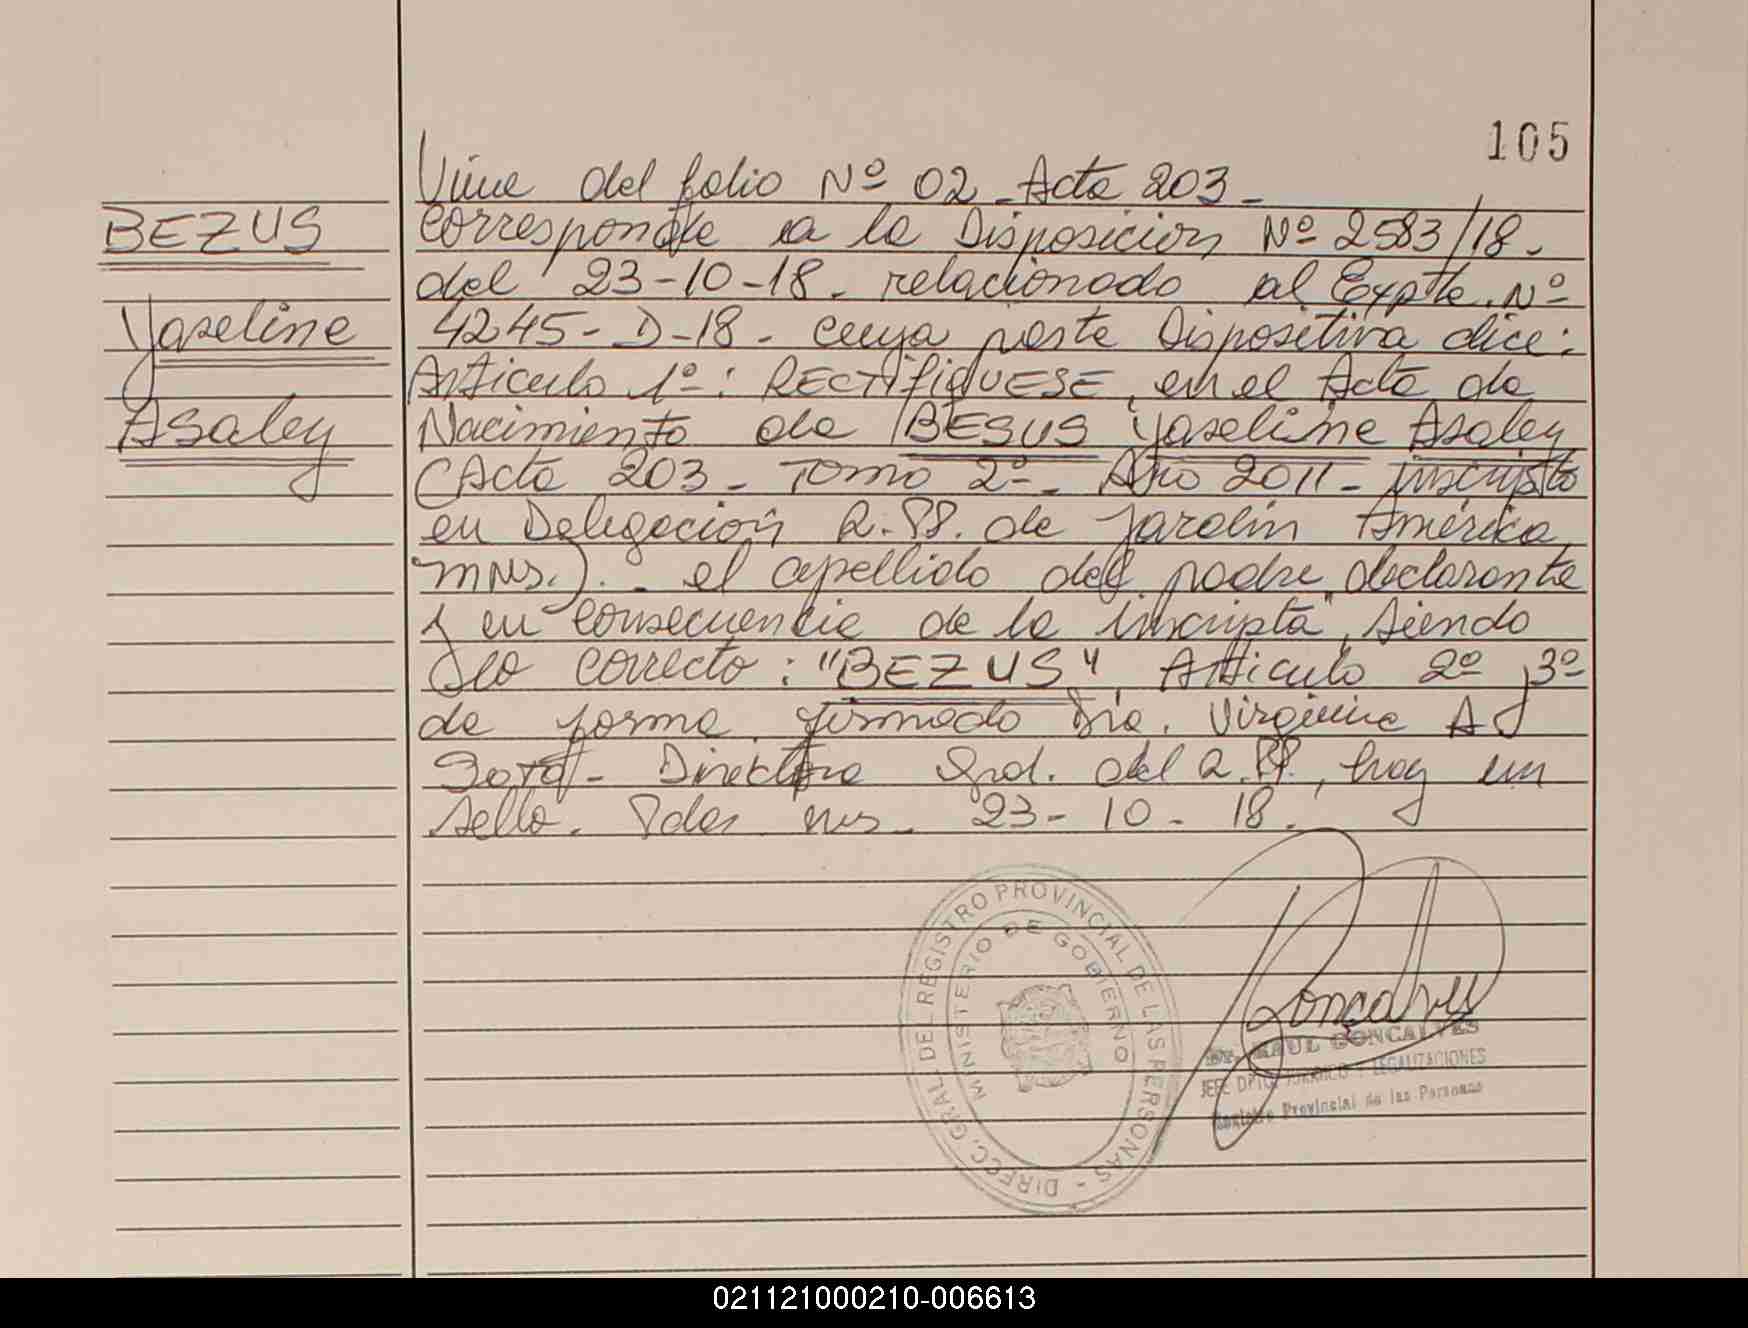 105
Viene del folio Nº 02 - Acta 203 -
BEZUS
Corresponde a la Disposición Nº 2583/18.
del 23-10-18. relacionado al Expte. Nº
Yaseline
4245-D-18. cuya parte Dispositiva dice:
Articulo 1º: RECTIFIQUESE, en el Acta de
Asaley
Nacimiento de BESUS Yaseline Asaley
(Acta 203 - Tomo 2º - Año 2011 - inscripta
en Delegación R.PP. de Jardín América
MNES.). - el apellido del padre declarante
y en consecuencia de la inscripta", siendo
lo correcto: "BEZUS", Articulo 2º y 3º
de forma, firmado Dra. Virginia A
Directora Gral. del R.PP., hay un
sello. Pdas. Mns. 23-10-18.
DIRECC. GRAL. DEL REGISTRO PROVINCIAL DE LAS PERSONAS -
MINISTERIO DE GOBIERNO
Goncalves
Dr. RAUL GONCALVES
JEFE DPTO. JURIDICO Y LEGALIZACIONES
Registro Provincial de las Personas
021121000210-006613